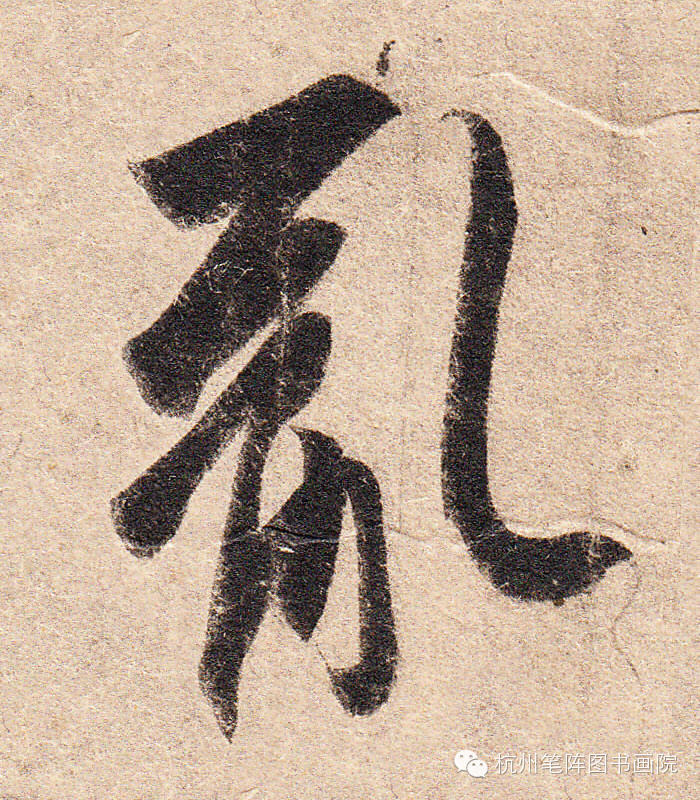 亂
杭州笔阵图书画院